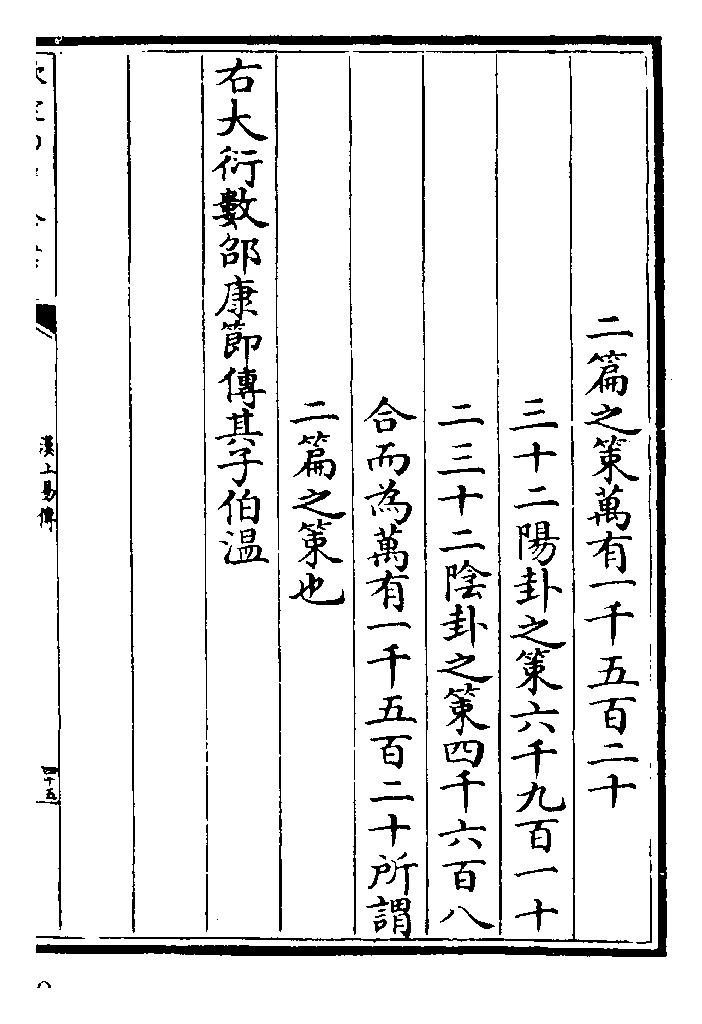 二篇之策萬有一千五百二十
三十二陽卦之策六千九百一十
二三十二陰卦之策四千六百八
合而為萬有一千五百二十所謂
二篇之策也
右大衍數邵康節傳其子伯温
漢上易傳
四十五